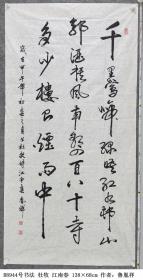 千里鶯啼綠映紅水邨山
郭酒旗風南朝四百八十寺
多少樓台煙雨中
BB944号书法 杜牧 江南春 138×68cm 作者：鲁胤祥